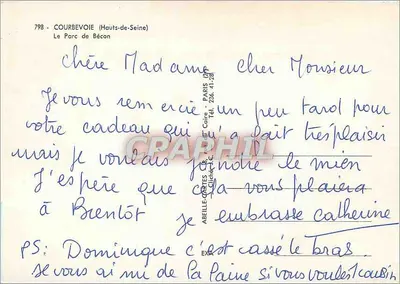 798 - COURBEVOIE (Hauts-de-Seine)
Le Parc de Bécon
Chère Madame cher Monsieur
Je vous remercie un peu tard pour
votre cadeau qui m'a fait tres plaisir
mais je voulais joindre le mien
J'espère que cela vous plaiera
à Bientôt je embrasse catherine
PS: Dominique c'est cassé le bras.
Je vous ai mi de la laine si vous voulez
CPARAPHIL
ABEILLE-CARTES
Caire - PARIS
Tél. 236 41-28